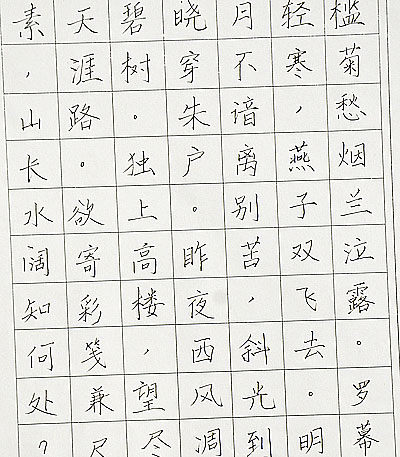 槛菊愁烟兰泣露。罗幕
轻寒，燕子双飞去。明
月不谙离别苦，斜光到
晓穿朱户。昨夜西风凋
碧树。独上高楼，望尽
天涯路。欲寄彩笺兼尺
素，山长水阔知何处？